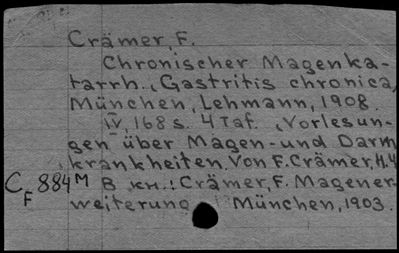 Crämer, F.
Chronischer Magenka-
tarrh., Gastritis chronica,
München, Lehmann, 1908.
IV, 168 s. 4 Taf. „Vorlesun-
gen über Magen- und Darm
krankheiten. Von F. Crämer, H. 4
C F 884 M В кн.: Crämer, F. Magener-
weiterung München, 1903.